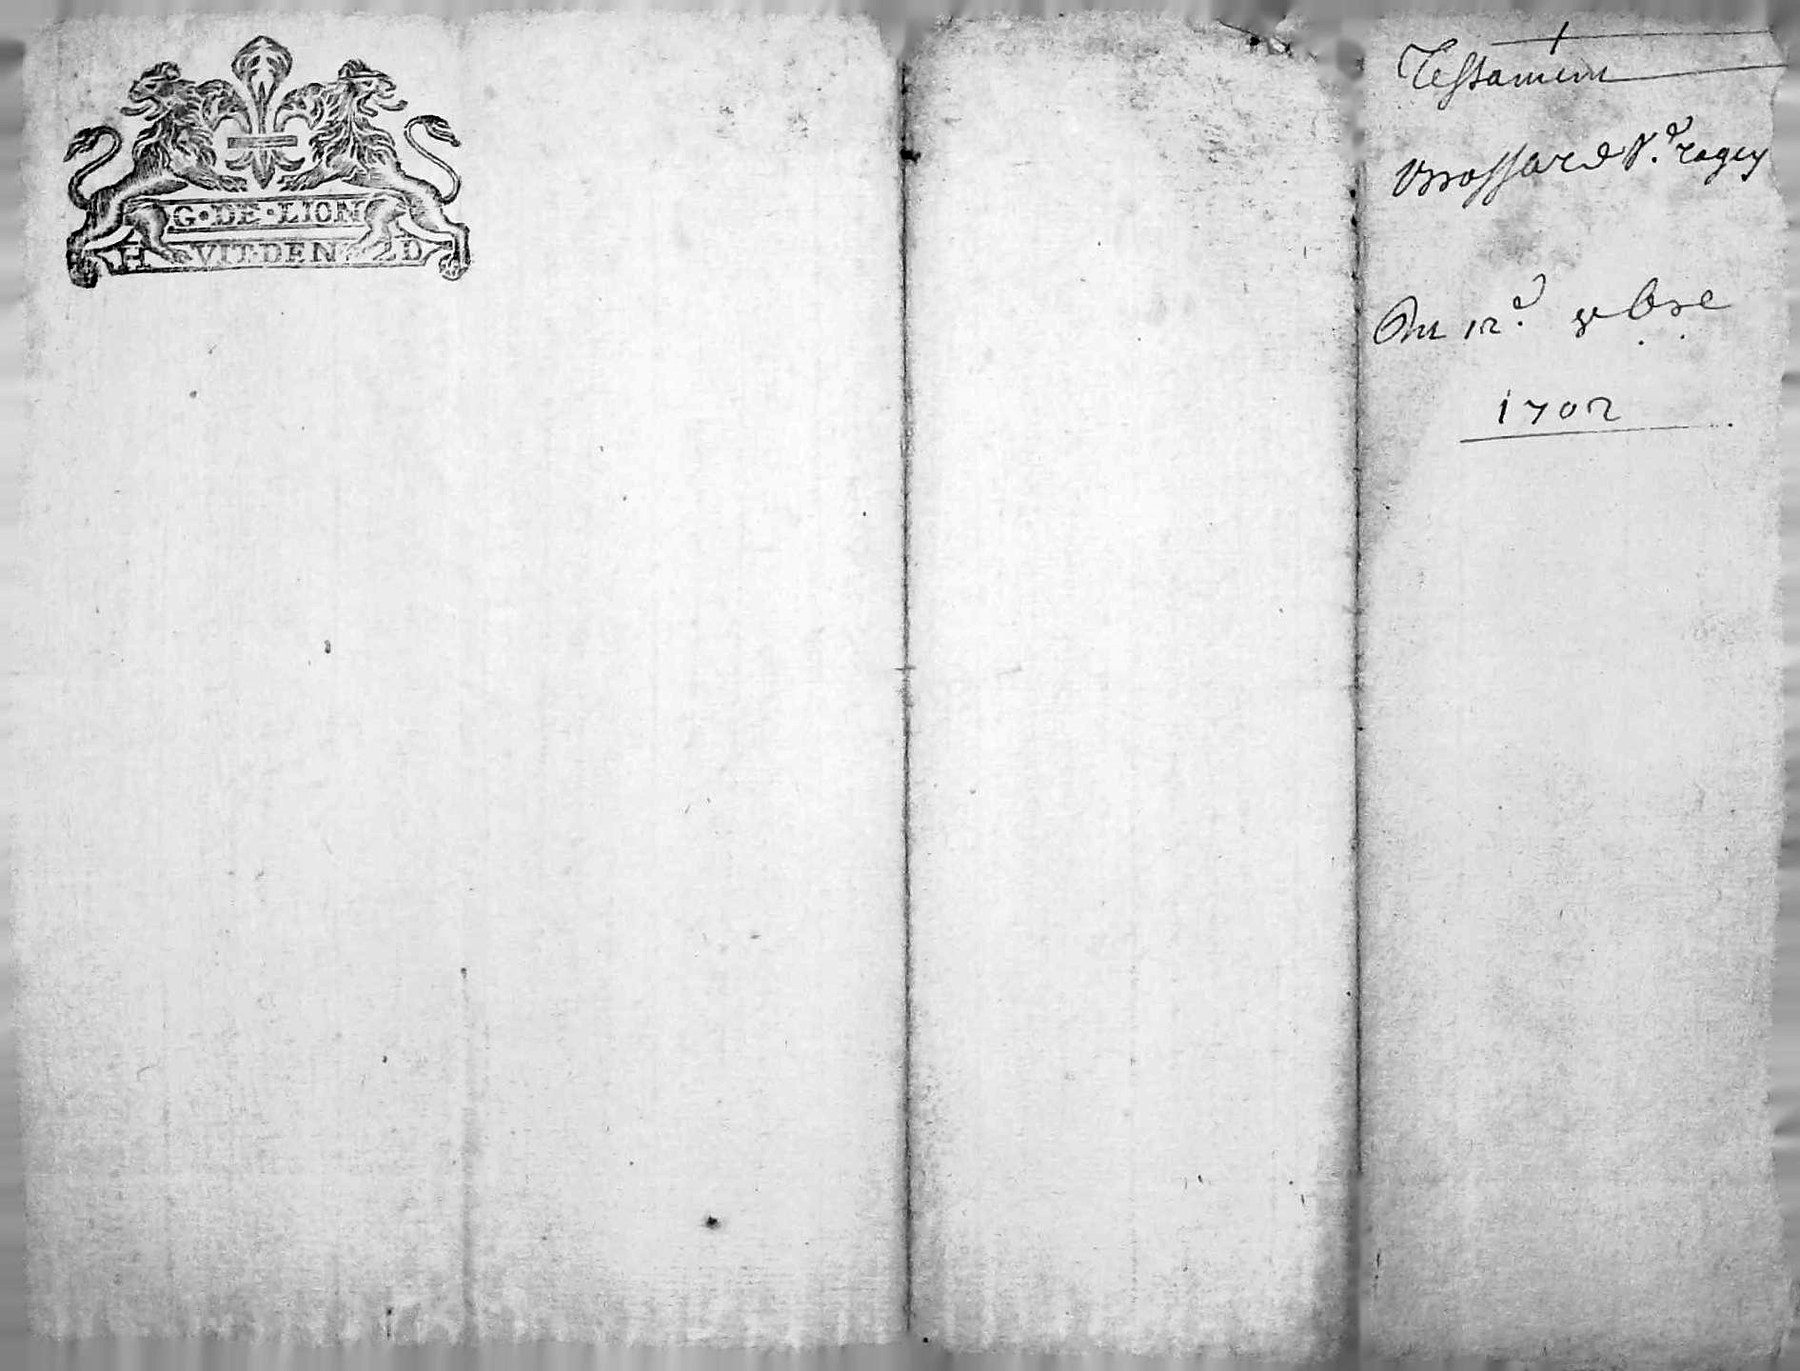 G·DE·LION
HVIT·DEN·2D
Testament
Brossard V.e ragey
Du 12.e 9bre
1702